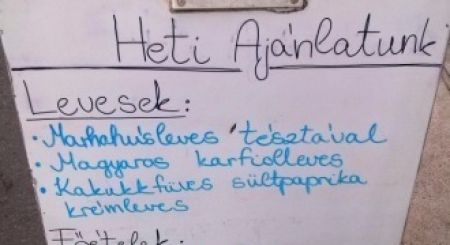 Heti Ajánlatunk
Levesek:
• Marhahúsleves tésztával
• Magyaros karfiolleves
• Kakukkfüves sültpaprika
krémleves
Főételek: